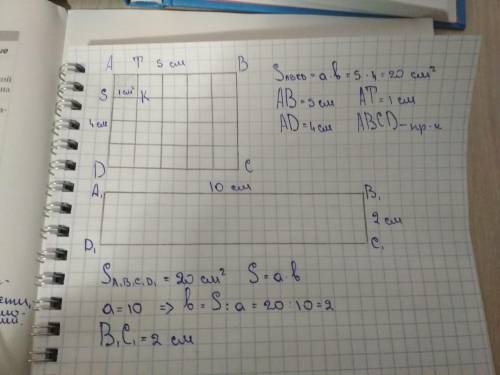 A T 5 см B
S 1см² K
4см
D C
S ABCD = a·b = 5·4 = 20 см²
AB = 5 см AT = 1 см
AD = 4 см ABCD – пр-к
10 см
A₁ B₁
2 см
D₁ C₁
S A₁B₁C₁D₁ = 20 см² S = a·b
a = 10 => b = S : a = 20 : 10 = 2
B₁C₁ = 2 см